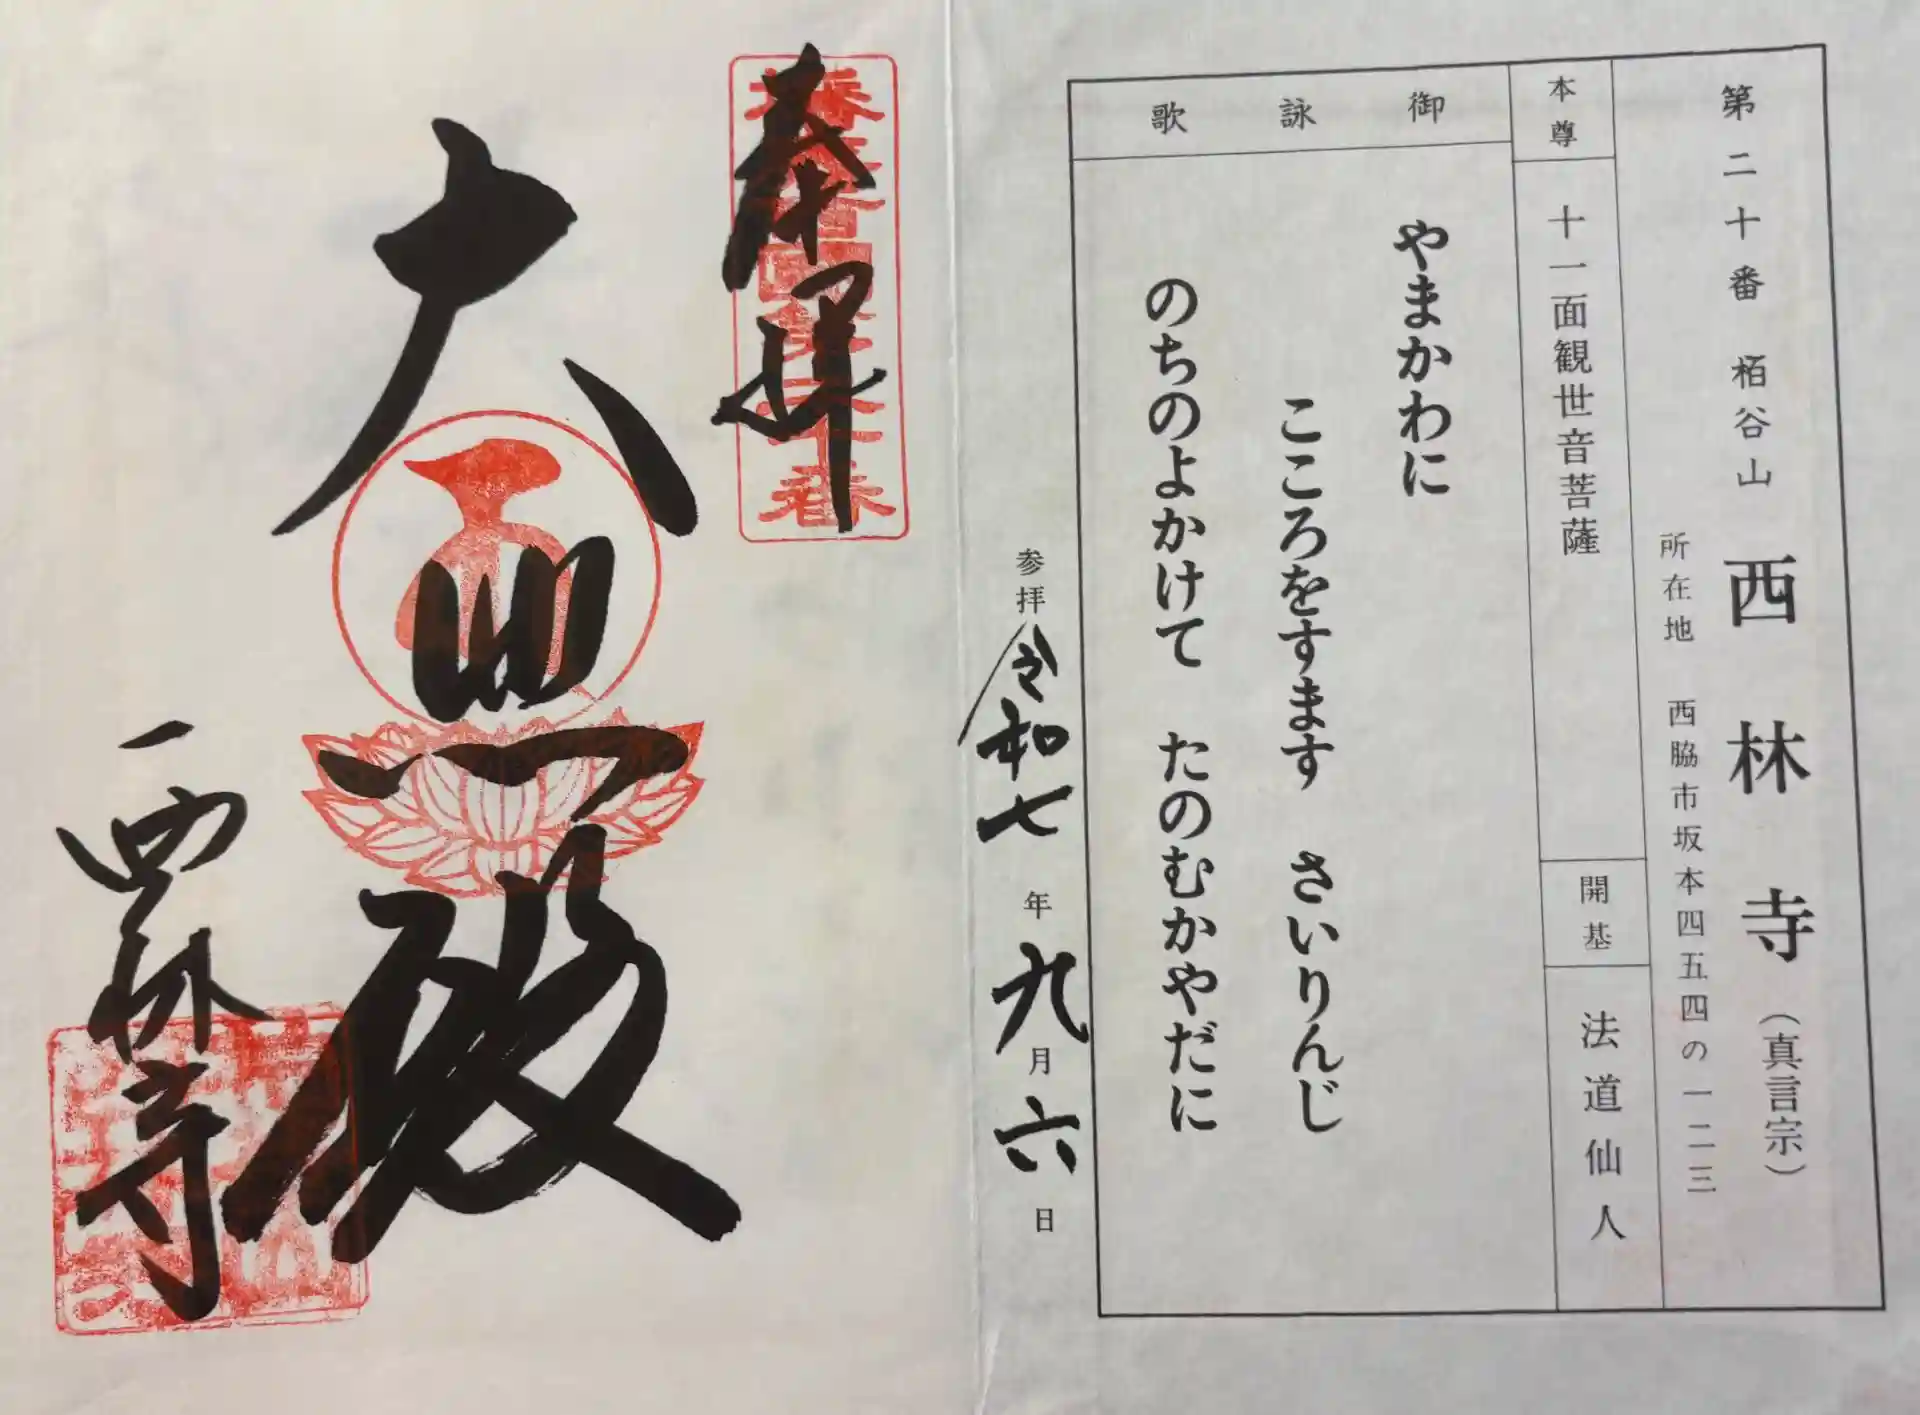 第二十番 栢谷山 西林寺（真言宗）
所在地 西脇市坂本四五四の一二三
本尊
十一面観世音菩薩
開基
法道仙人
御詠歌
やまかわに
こころをすます さいりんじ
のちのよかけて たのむかやだに
参拝 令和七年九月六日
奉拝
大悲殿
西林寺